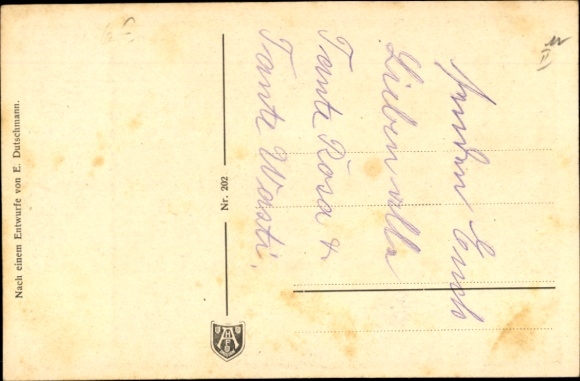 Nach einem Entwurfe von E. Dutschmann.
Nr. 202
Senden Euch
Lieben alle
Tante Rosa +
Tante Wasti.